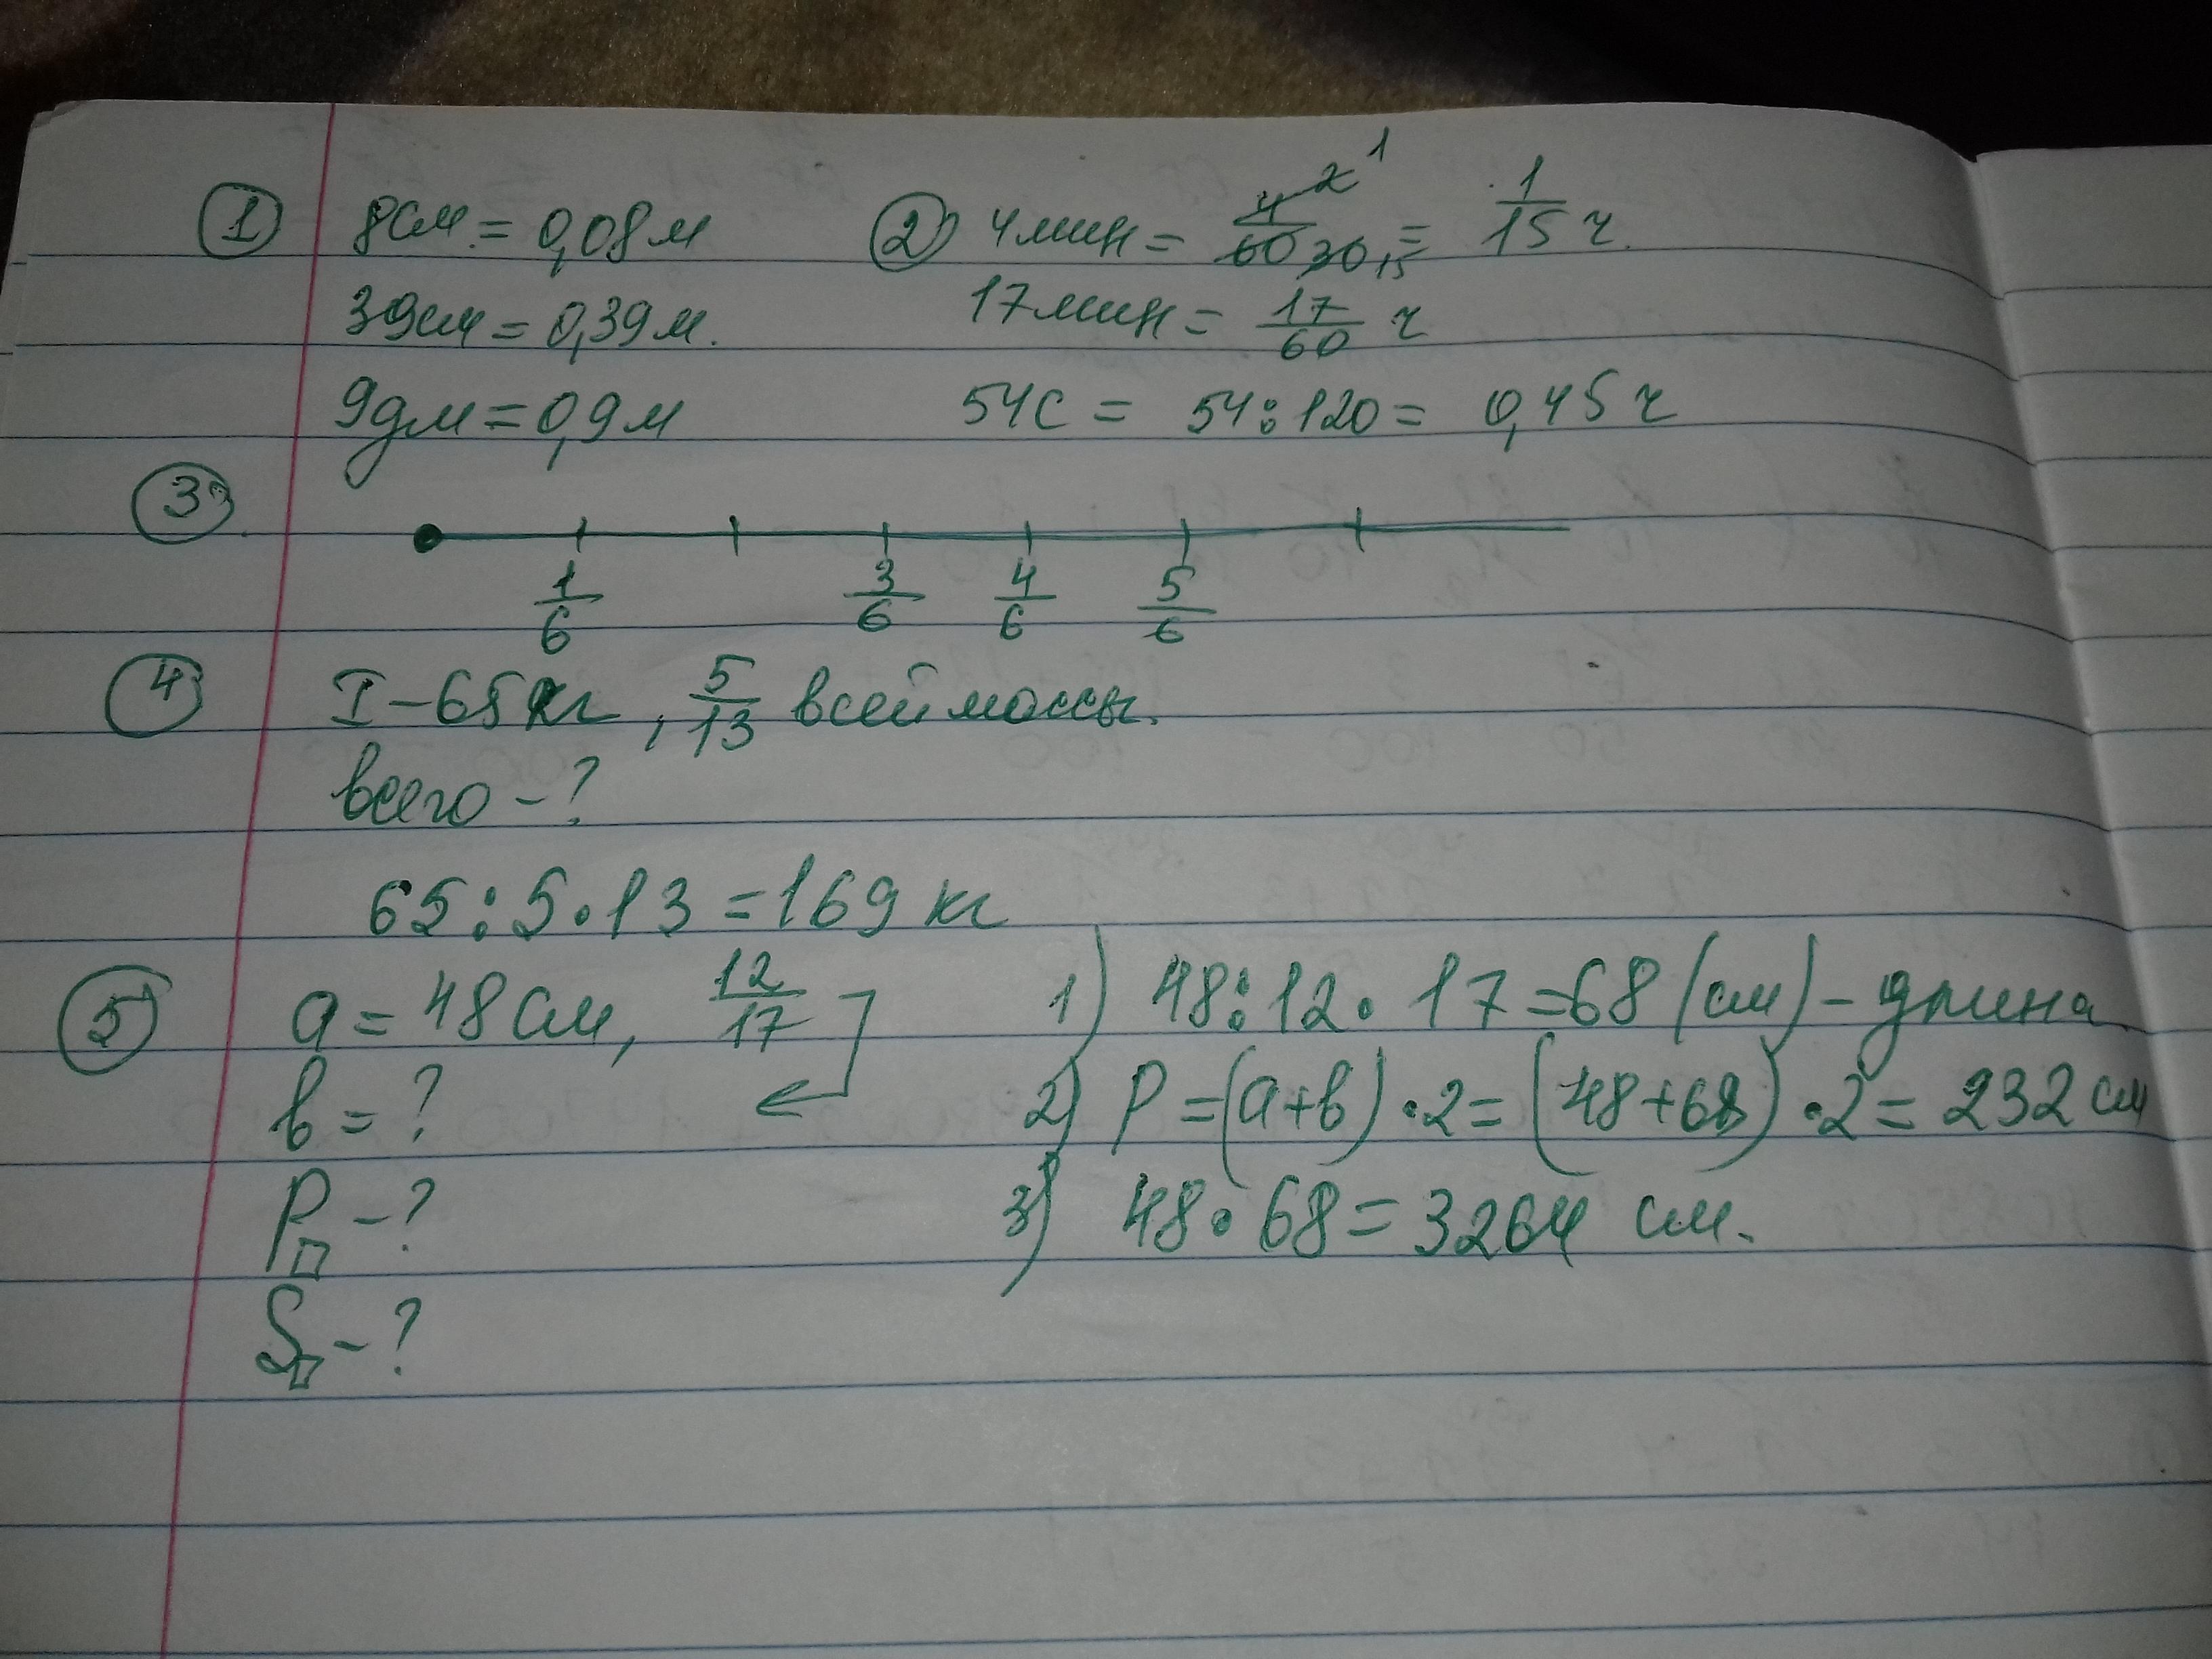 ① 8см = 0,08м
39см = 0,39м.
9дм = 0,9м
② 4мин = 4/60 2/30 1/15 = 1/15 ч.
17мин = 17/60 ч
54с = 54:120 = 0,45 ч
③
1/6 3/6 4/6 5/6
④ I – 65кг, 5/13 всей массы.
всего – ?
65:5·13 = 169 кг
⑤ a = 48 см, 12/17
b = ?
P□ – ?
S□ – ?
1) 48:12·17 = 68 (см) – длина
2) P = (a+b)·2 = (48+68)·2 = 232 см
3) 48·68 = 3264 см.